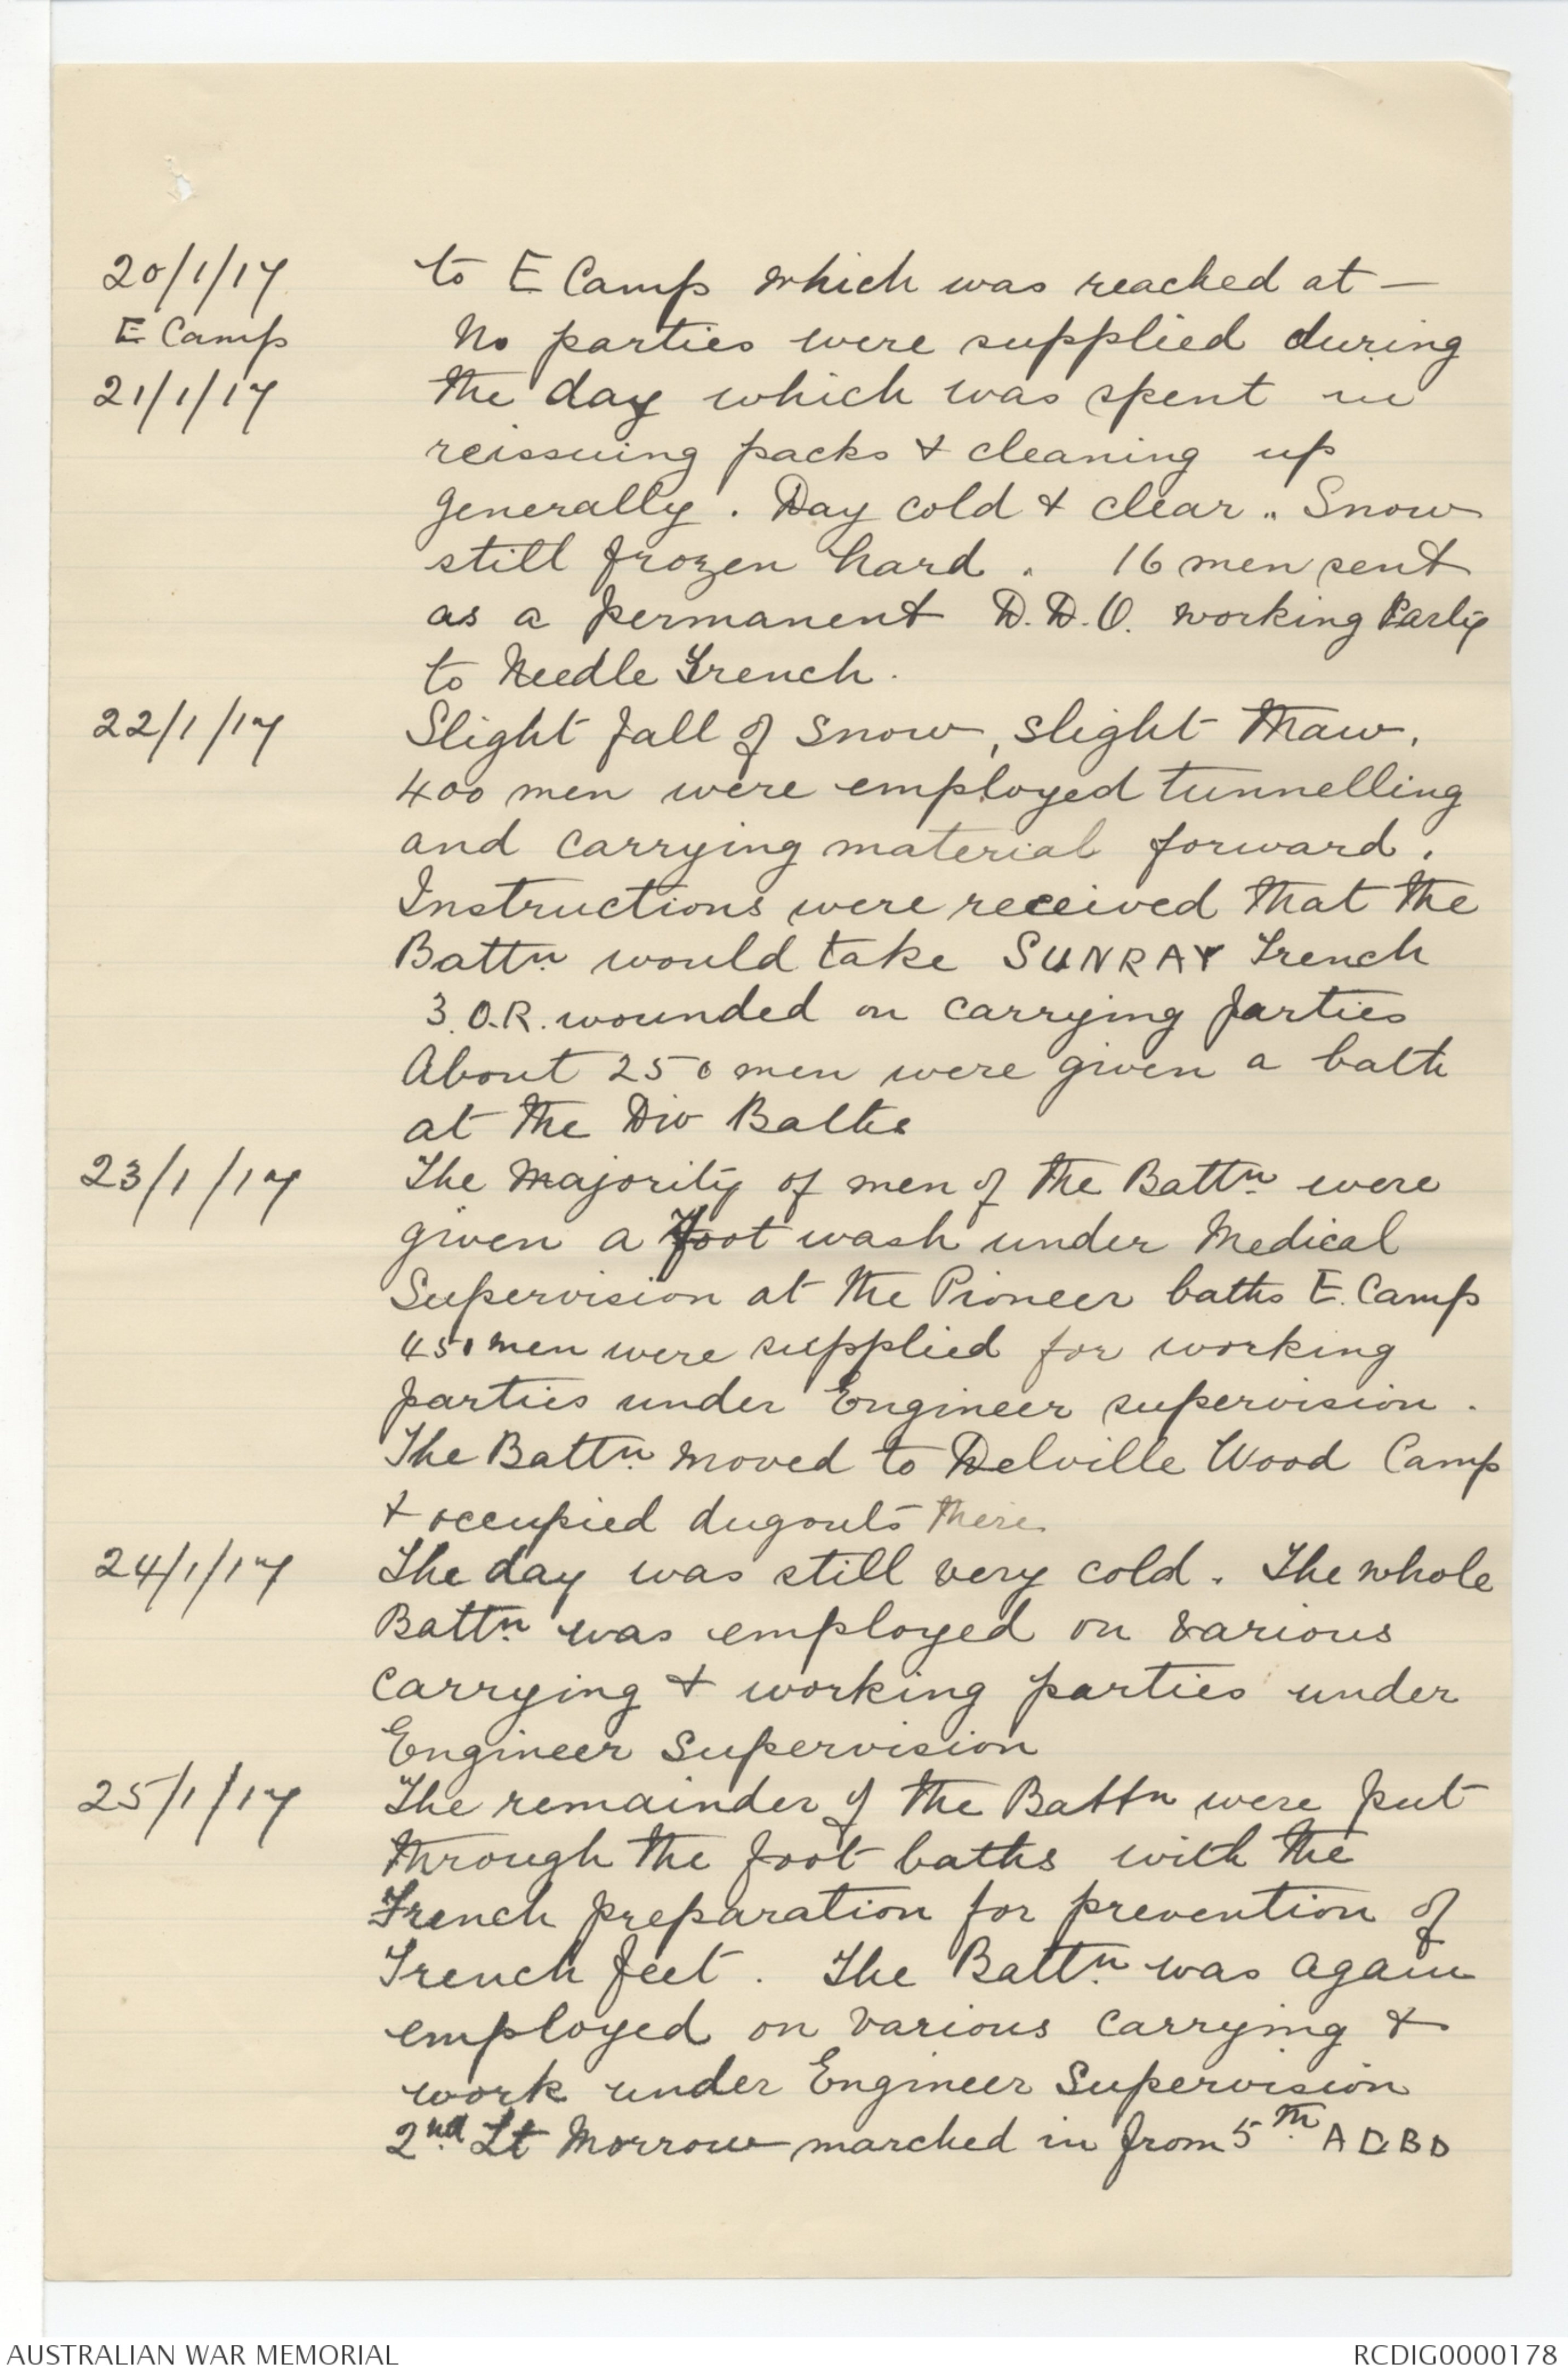 20/1/17 to E Camp which was reached at —
E Camp No parties were supplied during
21/1/17 the day which was spent in
reissuing packs & cleaning up
generally. Day cold & clear.. Snow
still frozen hard. 16 men sent
as a permanent D.D.O. working Party
to Needle Trench.
22/1/17 Slight fall of snow, slight thaw.
400 men were employed tunnelling
and carrying material forward.
Instructions were received that the
Battn. would take SUNRAY Trench
3.O.R. wounded on carrying parties
About 250 men were given a bath
at the Div Baths
23/1/17 The majority of men of the Battn. were
given a foot wash under Medical
Supervision at the Pioneer baths E. Camp
450 men were supplied for working
parties under Engineer supervision.
The Battn. moved to Delville Wood Camp
& occupied dugouts there.
24/1/17 The day was still very cold. The whole
Battn. was employed on various
carrying & working parties under
Engineer Supervision
25/1/17 The remainder of the Battn were put
through the foot baths with the
French preparation for prevention of
Trench feet. The Battn. was again
employed on various carrying &
work under Engineer Supervision
2nd. Lt Morrow marched in from 5th. A D B D
AUSTRALIAN WAR MEMORIAL RCDIG0000178